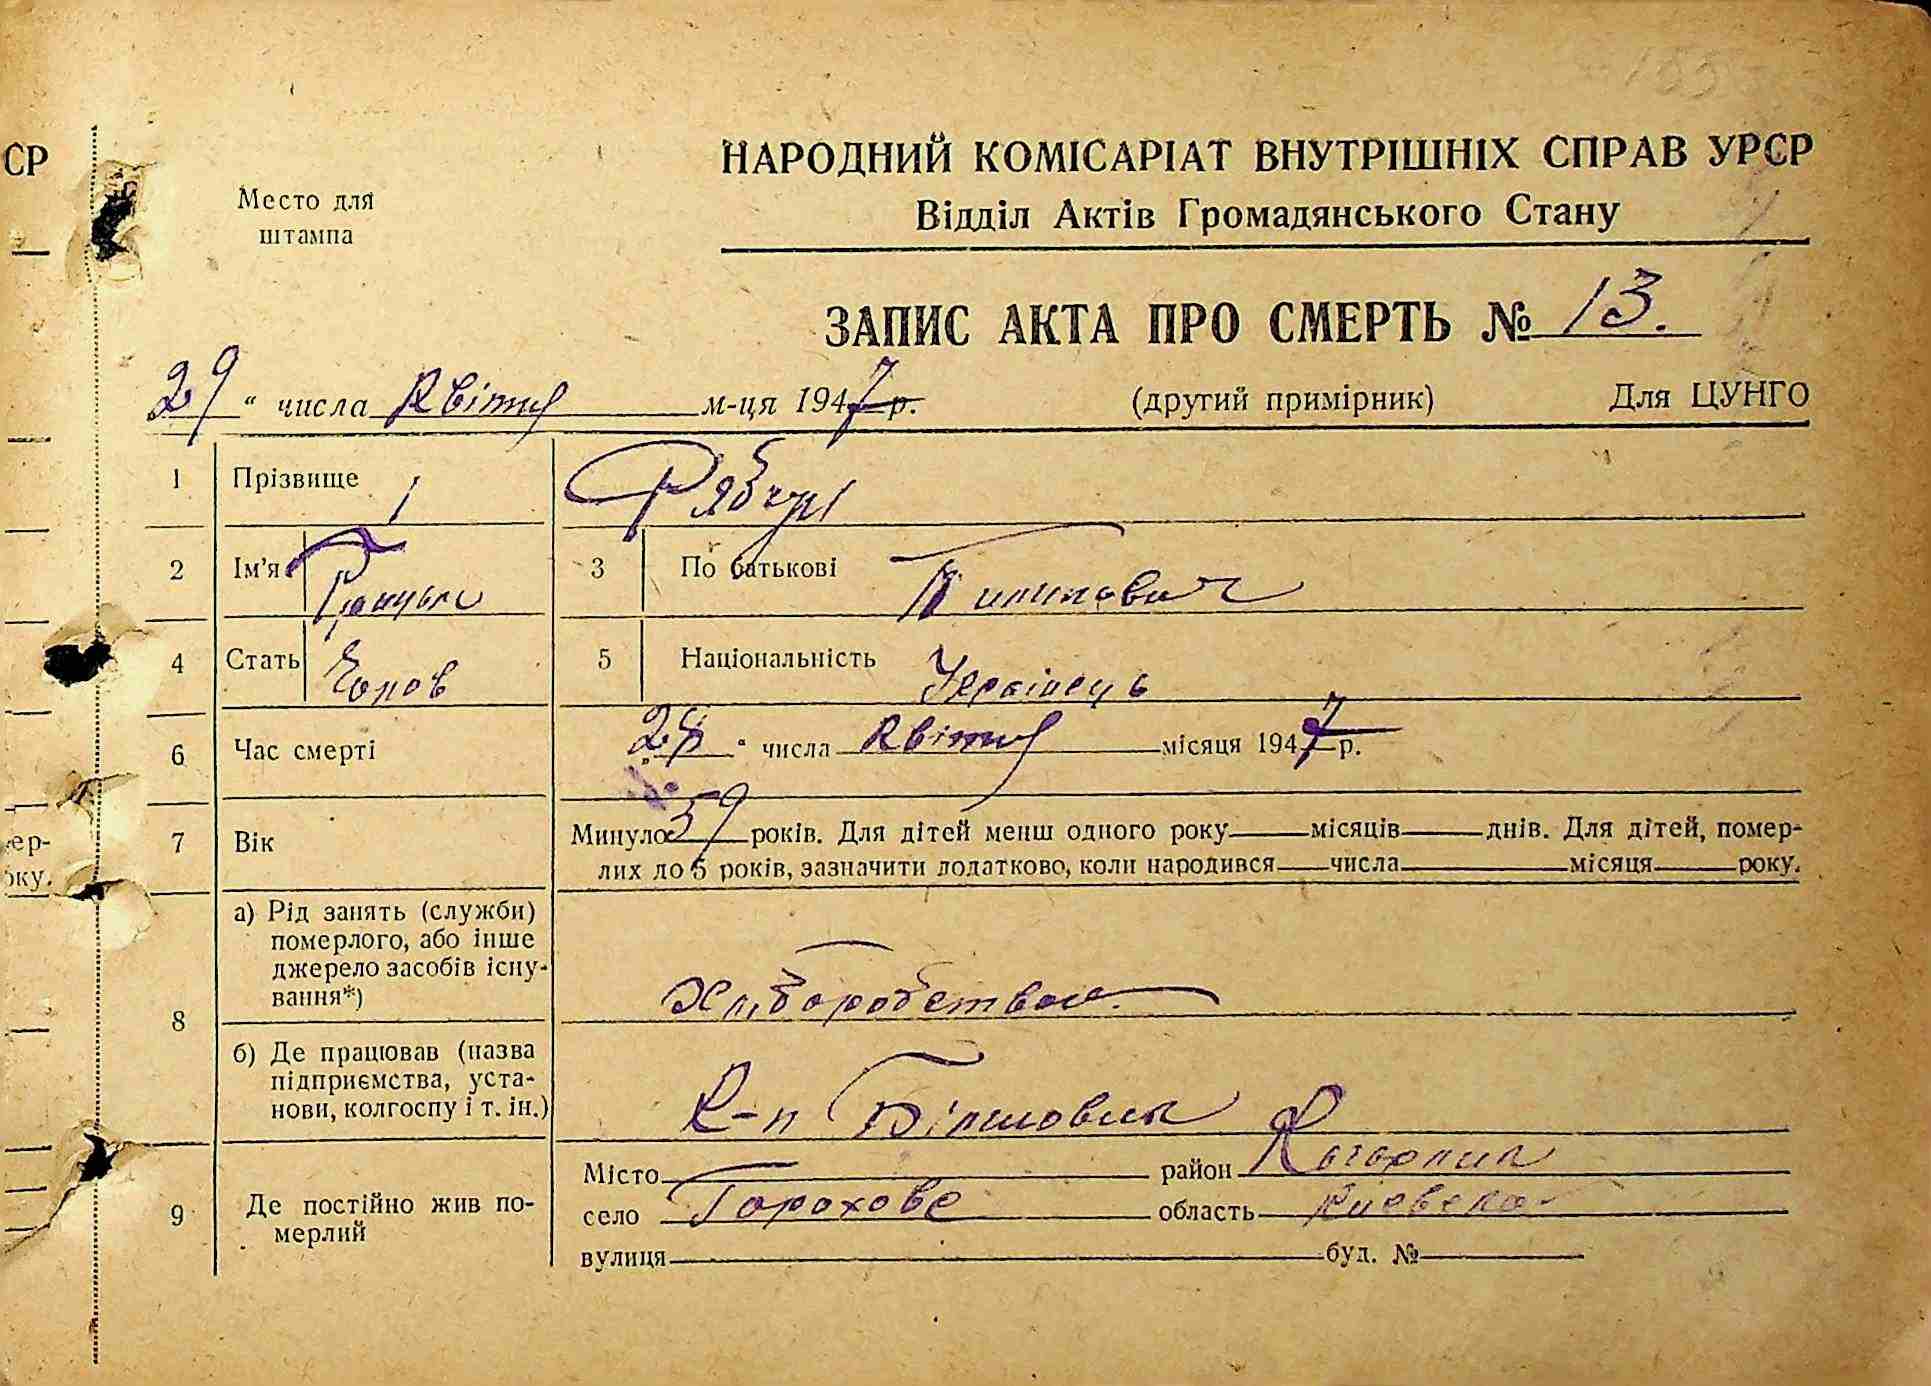 СР
Место для
штампа
НАРОДНИЙ КОМІСАРІАТ ВНУТРІШНІХ СПРАВ УРСР
Відділ Актів Громадянського Стану
ЗАПИС АКТА ПРО СМЕРТЬ № 13.
29 " числа Квітня м-ця 1947 р. (другий примірник) Для ЦУНГО
1 Прізвище Рябчун
2 Ім'я 3 По батькові Пилипович
4 Стать Чолов 5 Національність Українець
6 Час смерті „28 " числа Квітня місяця 1947 р.
7 Вік Минуло 59 років. Для дітей менш одного року — місяців — днів. Для дітей, помер-
лих до 5 років, зазначити додатково, коли народився — числа — місяця — року.
ер-
оку.
8 а) Рід занять (служби)
померлого, або інше
джерело засобів існу-
вання*)
Хліборобство.
б) Де працював (назва
підприємства, уста-
нови, колгоспу і т. ін.)
К-п Більшовик
9 Де постійно жив по-
мерлий
Місто район Кагарлик
село Горохове область Київска
вулиця буд. №